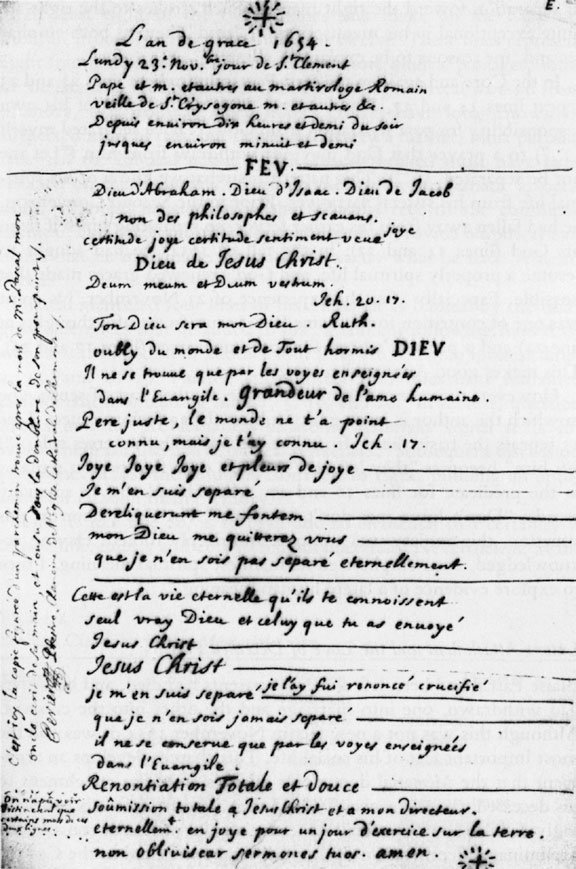 E.
L'an de grace 1654.
Lundy 23e Nov.bre jour de St Clement
Pape et m. et autres au martirologe Romain
veille de St Crysogone m. et autres &c.
Depuis environ dix heures et demi du soir
jusques environ minuit et demi
FEV.
Dieu d'Abraham. Dieu d'Isaac. Dieu de Jacob
non des philosophes et scavans.
certitude joye certitude sentiment veue joye
Dieu de Jesus Christ.
Deum meum et Deum vestrum.
Jeh. 20. 17.
Ton Dieu sera mon Dieu. Ruth.
oubly du monde et de Tout hormis DIEV
Il ne se trouve que par les voyes enseignées
dans l'Euangile. Grandeur de l'ame humaine.
Pere juste, le monde ne t'a point
connu, mais je t'ay connu. Jeh. 17.
Joye Joye Joye et pleurs de joye
Je m'en suis separé
Dereliquerunt me fontem
mon Dieu me quitterez vous
que je n'en sois pas separé eternellement.
Cette est la vie eternelle qu'ils te connoissent
seul vray Dieu et celuy que tu as envoyé
Jesus Christ
Jesus Christ
je m'en suis separé je l'ay fui renoncé crucifié
que je n'en sois jamais separé
il ne se conserve que par les voyes enseignées
dans l'Euangile.
Renontiation Totale et douce
soûmission totale a Jesus Christ et a mon Directeur.
eternellemt en joye pour un jour d'exercice sur la terre.
non obliviscar sermones tuos. amen.
la copie figurée d'un parchemin trouvé apres la mort de M. Pascal mon
oncle ecrit de sa main et cousu dans la doublure de son pourpoint
On n'a pu voir
que
certains mots de ces
deux lignes.